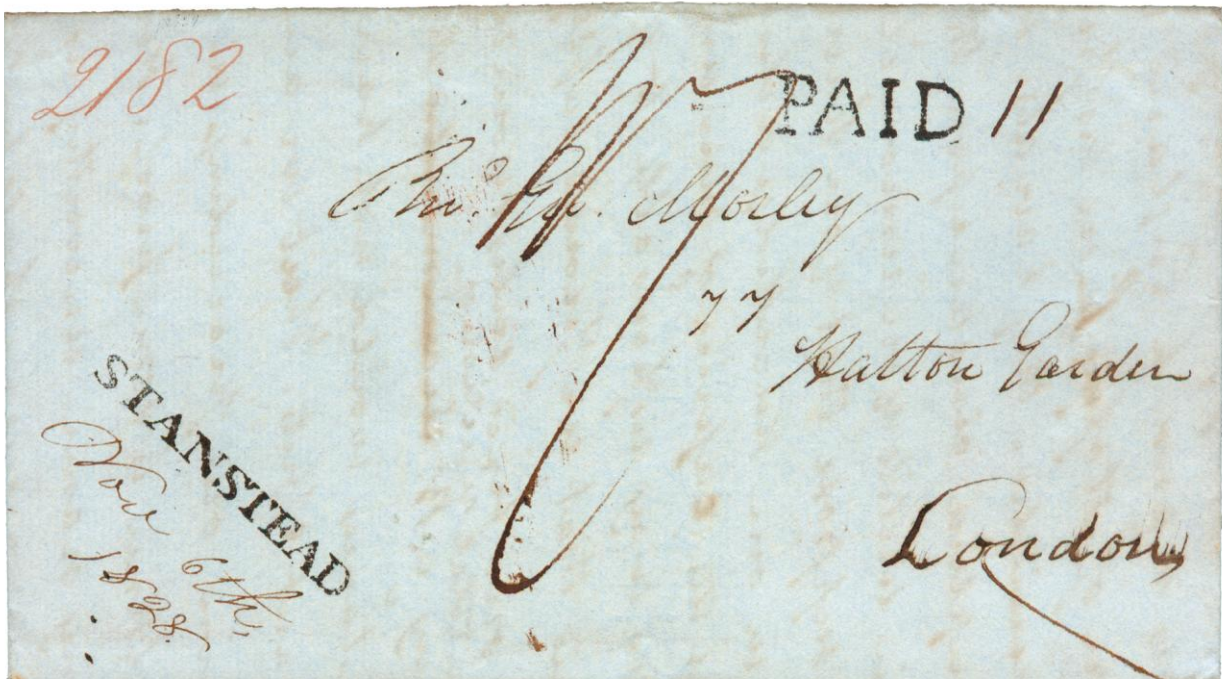 2182
PAID 11
Morley
77
Hatton Garden
London
STANSTEAD
Nov 6th,
1828.